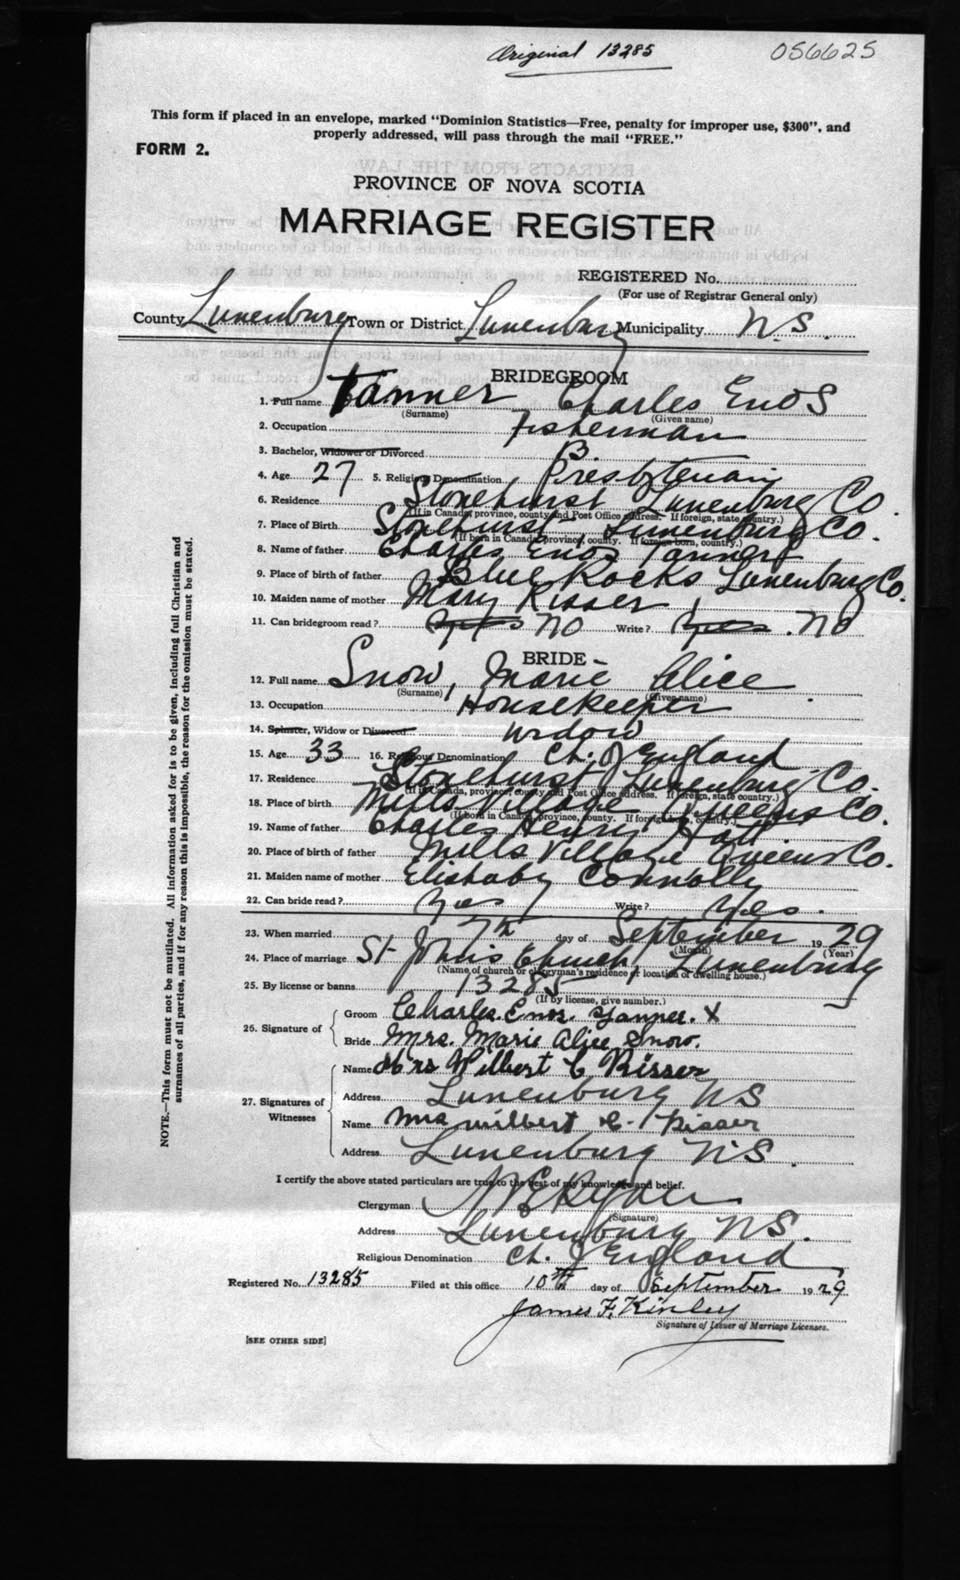 Original 13285
056625
This form if placed in an envelope, marked "Dominion Statistics—Free, penalty for improper use, $300", and
properly addressed, will pass through the mail "FREE."
FORM 2.
PROVINCE OF NOVA SCOTIA
MARRIAGE REGISTER
REGISTERED No.
(For use of Registrar General only)
County Lunenburg Town or District Lunenburg Municipality N.S.
BRIDEGROOM
1. Full name Tanner Charles Enos
(Surname) (Given name)
2. Occupation Fisherman
3. Bachelor, Widower or Divorced B.
4. Age 27 5. Religious Denomination Presbyterian
6. Residence Stonehurst Lunenburg Co
(If in Canada, province, county and Post Office address. If foreign, state country.)
7. Place of Birth Stonehurst, Lunenburg Co.
(If born in Canada, province, county. If foreign born, country.)
8. Name of father Charles Enos Tanner
9. Place of birth of father Blue Rocks Lunenburg Co.
10. Maiden name of mother Mary Risser
11. Can bridegroom read? Yes No Write? Yes. No
BRIDE -
12. Full name Snow, Marie Alice
(Surname) (Given name)
13. Occupation Housekeeper
14. Spinster, Widow or Divorced Widow
15. Age 33 16. Religious Denomination Ch. of England
17. Residence Stonehurst Lunenburg Co.
(If in Canada, province, county and Post Office address. If foreign, state country.)
18. Place of birth Mills Village Queens Co.
(If born in Canada, province, county. If foreign born, country.)
19. Name of father Charles Henry
20. Place of birth of father Mills Village Queens Co.
21. Maiden name of mother Elishaby Connolly
22. Can bride read? Yes Write? Yes.
23. When married 7th day of September 1929
(Month) (Year)
24. Place of marriage St Johns Church, Lunenburg
(Name of church or clergyman's residence or location of dwelling house.)
25. By license or banns 13285
(If by license, give number.)
26. Signature of
Groom Charles Enos. Tanner. X
Bride Mrs. Marie Alice Snow.
27. Signatures of Witnesses
Name Mrs Wilbert C Risser
Address Lunenburg NS
Name Mrs Wilbert C. Risser
Address Lunenburg N.S.
I certify the above stated particulars are true to the best of my knowledge and belief.
Clergyman Ryder
(Signature)
Address Lunenburg NS.
Religious Denomination Ch. of England
Registered No. 13285 Filed at this office 10th day of September 1929
James F. Kinley
Signature of Issuer of Marriage Licenses.
[SEE OTHER SIDE]
NOTE.—This form must not be mutilated. All information asked for is to be given, including full Christian and
surnames of all parties, and if for any reason this is impossible, the reason for the omission must be stated.